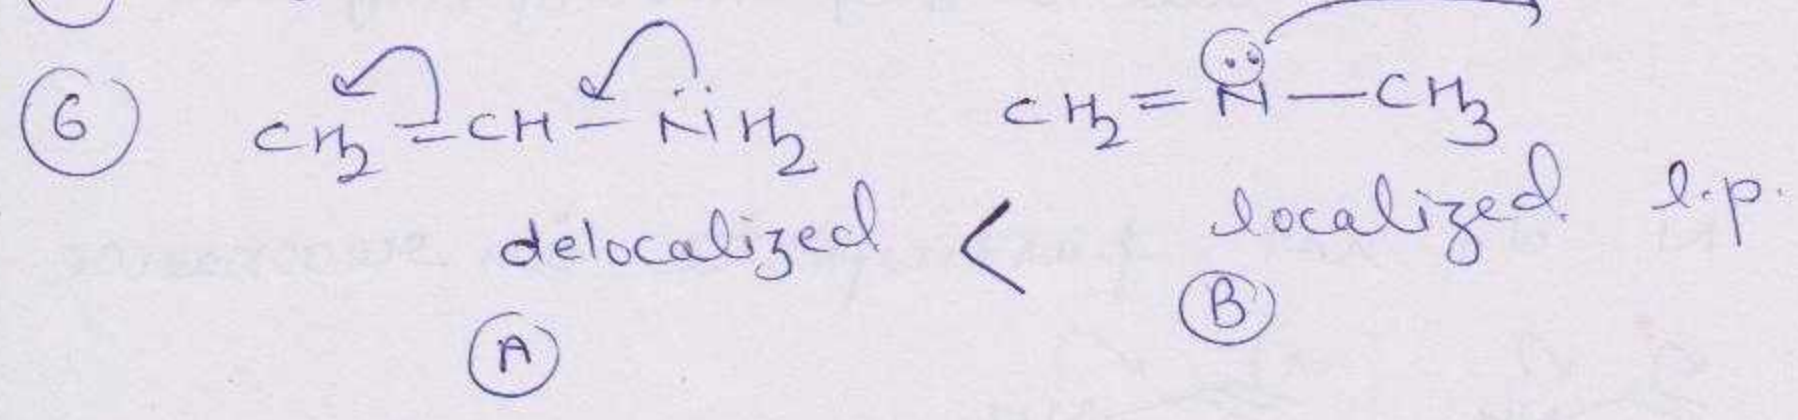 6 CH2=CH-N̈H2 CH2=N̈-CH3
delocalized < localized l.p.
A B